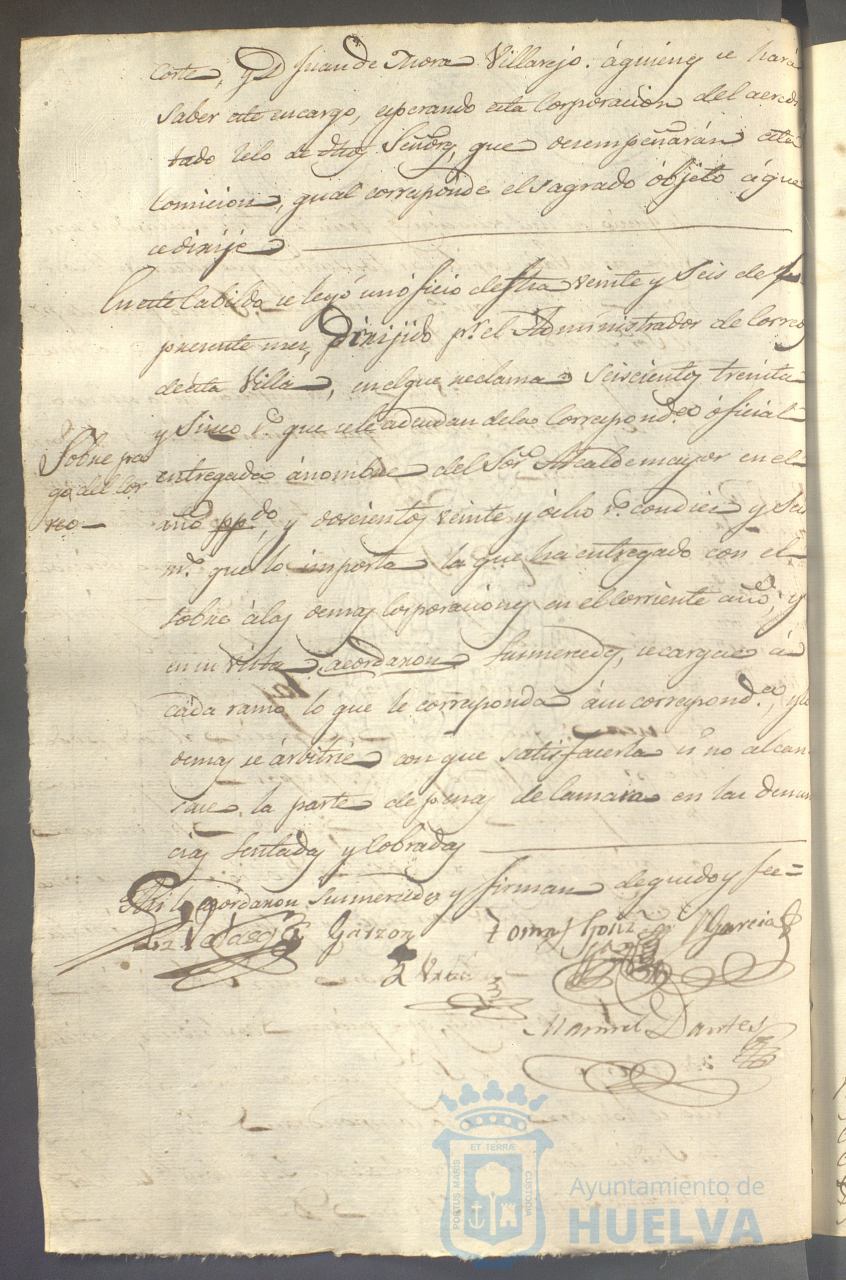 Corte, y D Juan de Mora Villarejo. á quienes se hará
saber este encargo, esperando esta Corporacion del acredi
tado zelo de dhos Señores, que desempeñarán esta
Comicion, qual corresponde el sagrado óbjeto á que
se dirije
En este Cabildo se leyó un óficio de fha veinte y seis de
presente mes, dirijido pr. el Administrador de Correos
de esta Villa, en el que reclama seiscientos treinta
y sinco rs. que se le adeudan de la Correspond.ca óficial
entregada á nombre del Sor. Alcalde mayor en el
año pp.do, y doscientos veinte y ócho rs. con diez y seis
ms. que lo importa la que ha entregado con el
sobre á las demas Corporaciones en el corriente año, y
en su vista acordaron sus mercedes, se cargue á
cada ramo lo que le corresponda á su correspond.ca, y lo
demas se árbitrie con que satisfacerla si no alcan
sase la parte de penas de Camara en las denun
cias sentadas y cobradas
Sobre pa
go del Cor
reo
Asi lo acordaron sus mercedes y firman de que doy fee =
Velasco Garzon Tomas Gonz Garcia
Manuel Dantes
Ayuntamiento de
HUELVA
PORTUS MARIS
ET TERRÆ
CUSTODIA